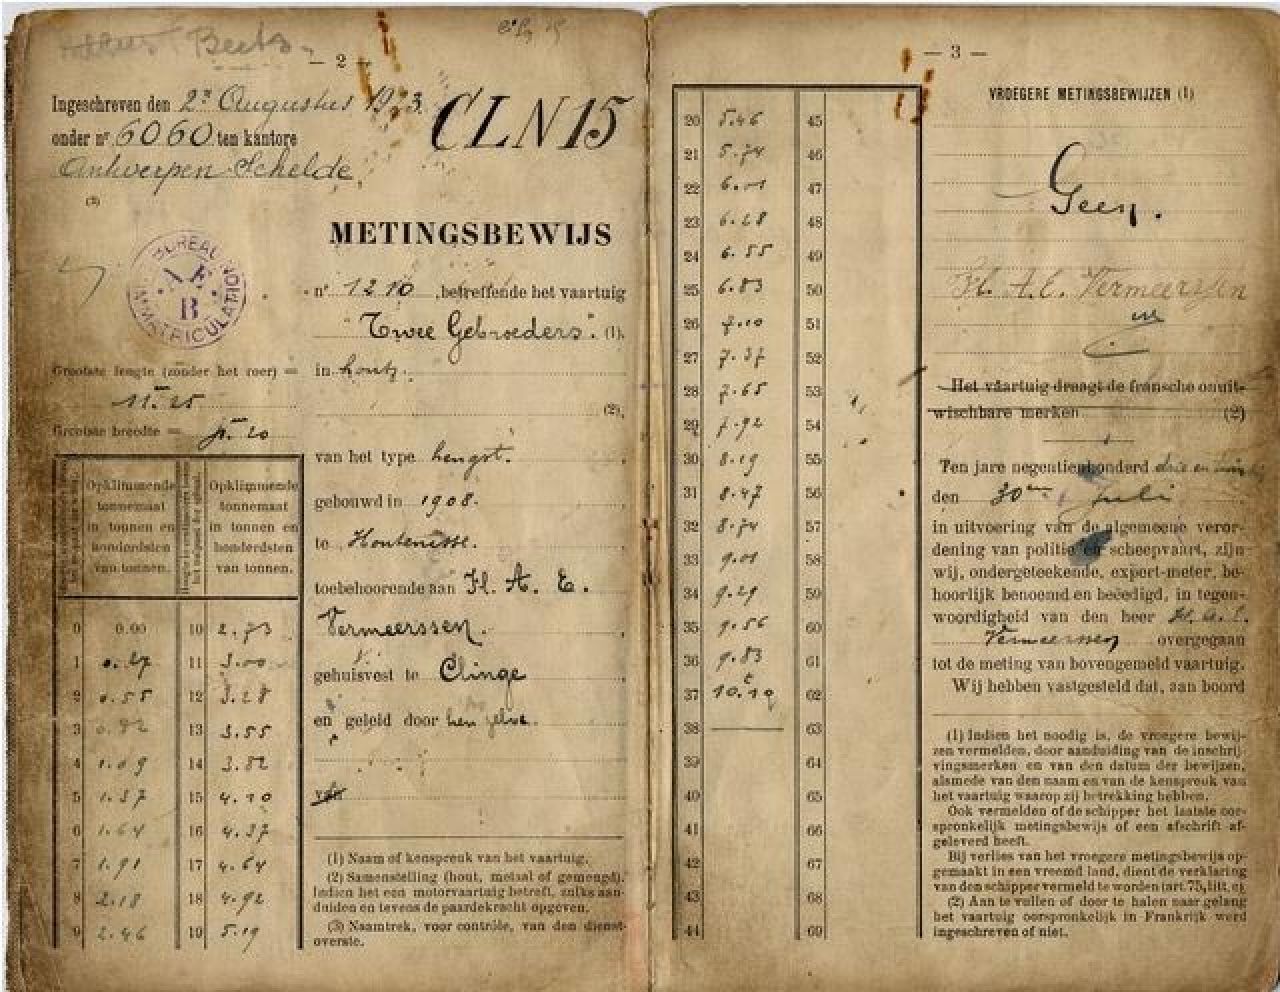 Beets.
— 2 —
Ingeschreven den 2n Augustus 1923.
onder nr 6060 ten kantore
Antwerpen-Schelde
(3)
CLN15
BUREAU
IMMATRICULATION
B
METINGSBEWIJS
nr 1210, betreffende het vaartuig
"Twee Gebroeders". (1).
in hout.
(2),
van het type hengst.
gebouwd in 1908.
te Hontenisse.
toebehoorende aan H. A. E.
Vermeerssen.
gehuisvest te Clinge
en geleid door hem zelve.
Grootste lengte (zonder het roer) =
11m25
Grootste breedte =
Opklimmende
tonnemaat
in tonnen en
honderdsten
van tonnen.
Opklimmende
tonnemaat
in tonnen en
honderdsten
van tonnen.
0 0.00 10 2.73
1 0.27 11 3.00
2 0.55 12 3.28
3 0.82 13 3.55
4 1.09 14 3.82
5 1.37 15 4.10
6 1.64 16 4.37
7 1.91 17 4.64
8 2.18 18 4.92
9 2.46 19 5.19
(1) Naam of kenspreuk van het vaartuig.
(2) Samenstelling (hout, metaal of gemengd).
Indien het een motorvaartuig betreft, zulks aan-
duiden en tevens de paardekracht opgeven.
(3) Naamtrek, voor contrôle, van den dienst-
overste.
— 3 —
20 5.46 45
21 5.74 46
22 6.01 47
23 6.28 48
24 6.55 49
25 6.83 50
26 7.10 51
27 7.37 52
28 7.65 53
29 7.92 54
30 8.19 55
31 8.47 56
32 8.74 57
33 9.01 58
34 9.29 59
35 9.56 60
36 9.83 61
37 10.19 62
38 63
39 64
40 65
41 66
42 67
43 68
44 69
VROEGERE METINGSBEWIJZEN (1)
Geen.
H. A. E. Vermeerssen
Het vaartuig draagt de fransche onuit-
wischbare merken (2)
Ten jare negentienhonderd drie en
den 30en Juli
in uitvoering van de algemeene veror-
dening van politie en scheepvaart, zijn
wij, ondergeteekende, expert-meter, be-
hoorlijk benoemd en beëedigd, in tegen-
woordigheid van den heer H. A. E.
Vermeerssen overgegaan
tot de meting van bovengemeld vaartuig.
Wij hebben vastgesteld dat, aan boord
(1) Indien het noodig is, de vroegere bewij-
zen vermelden, door aanduiding van de inschrij-
vingsmerken en van den datum der bewijzen,
alsmede van den naam en van de kenspreuk van
het vaartuig waarop zij betrekking hebben.
Ook vermelden of de schipper het laatste oor-
spronkelijk metingsbewijs of een afschrift af-
geleverd heeft.
Bij verlies van het vroegere metingsbewijs op-
gemaakt in een vreemd land, dient de verklaring
van den schipper vermeld te worden (art. 75, litt. c).
(2) Aan te vullen of door te halen naar gelang
het vaartuig oorspronkelijk in Frankrijk werd
ingeschreven of niet.